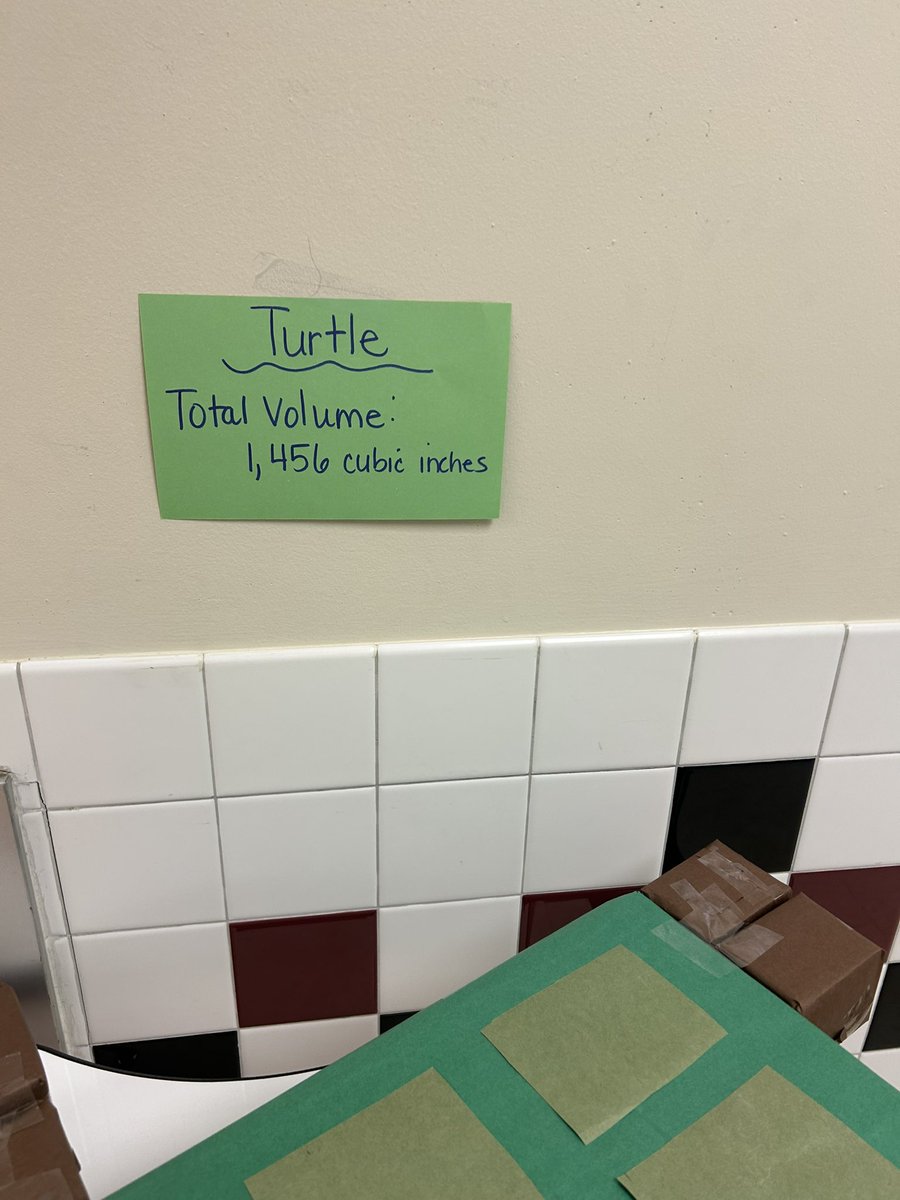 Turtle
Total Volume:
1,456 cubic inches